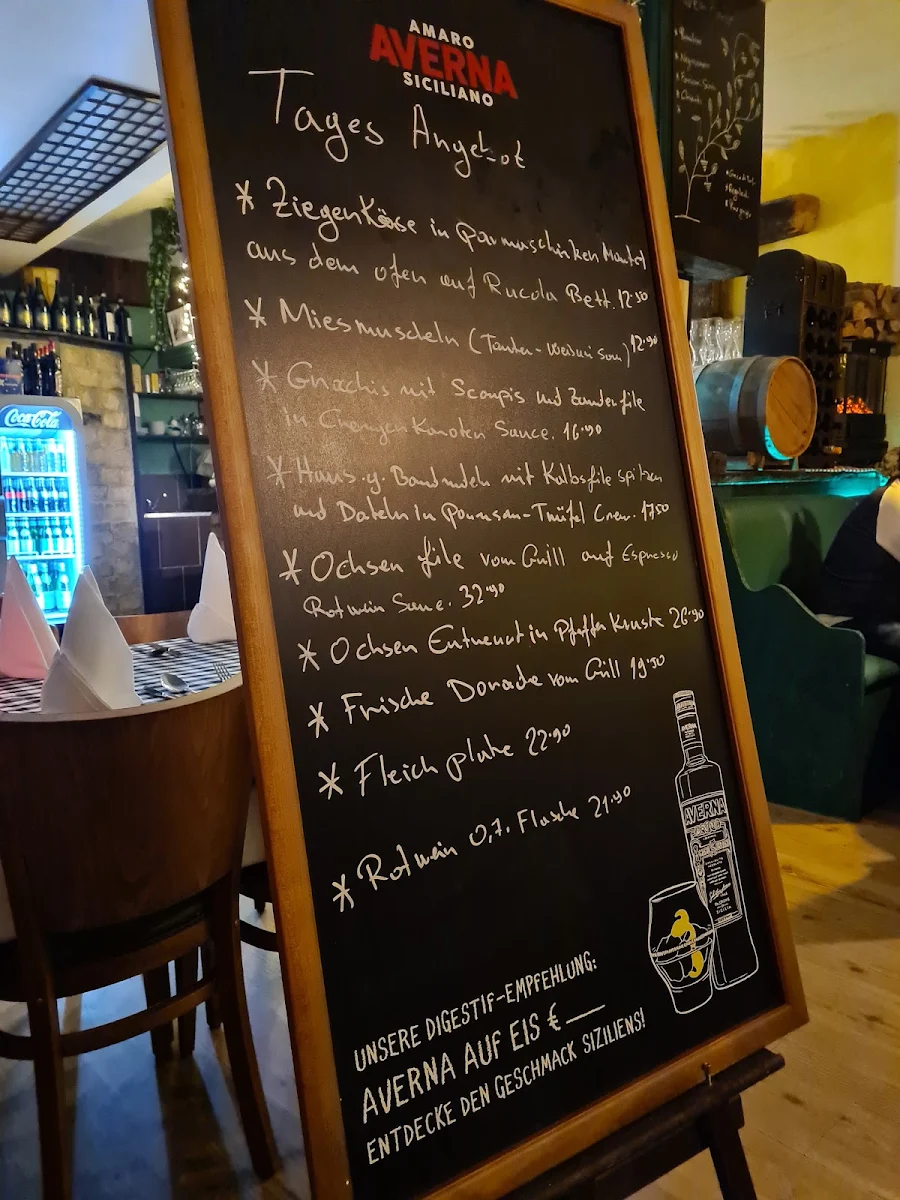 AMARO
AVERNA
SICILIANO
Tages Angebot
* Ziegenköse in Parmaschinken Mantel
aus dem ofen auf Rucola Bett. 12.50
* Miesmuscheln (Tomaten-Weiswein Son) 12.90
* Gnocchis mit Scampis und Zanderfile
in Karotten Sauce. 16.90
* Haus.g. Bandnudeln mit Kalbsfile spitzen
und Dateln in Parmesan-Trüfel Crem. 17.50
* Ochsen file vom Grill auf Espresso
Rotwein Sauce. 32.90
* Ochsen Entrecot in Pfeffer Kruste 26.90
* Frische Dorade vom Grill 19.50
* Fleich plate 22.90
* Rotwein 0,7. Flasche 21.90
UNSERE DIGESTIF-EMPFEHLUNG:
AVERNA AUF EIS €
ENTDECKE DEN GESCHMACK SIZILIENS!
AVERNA
Coca-Cola